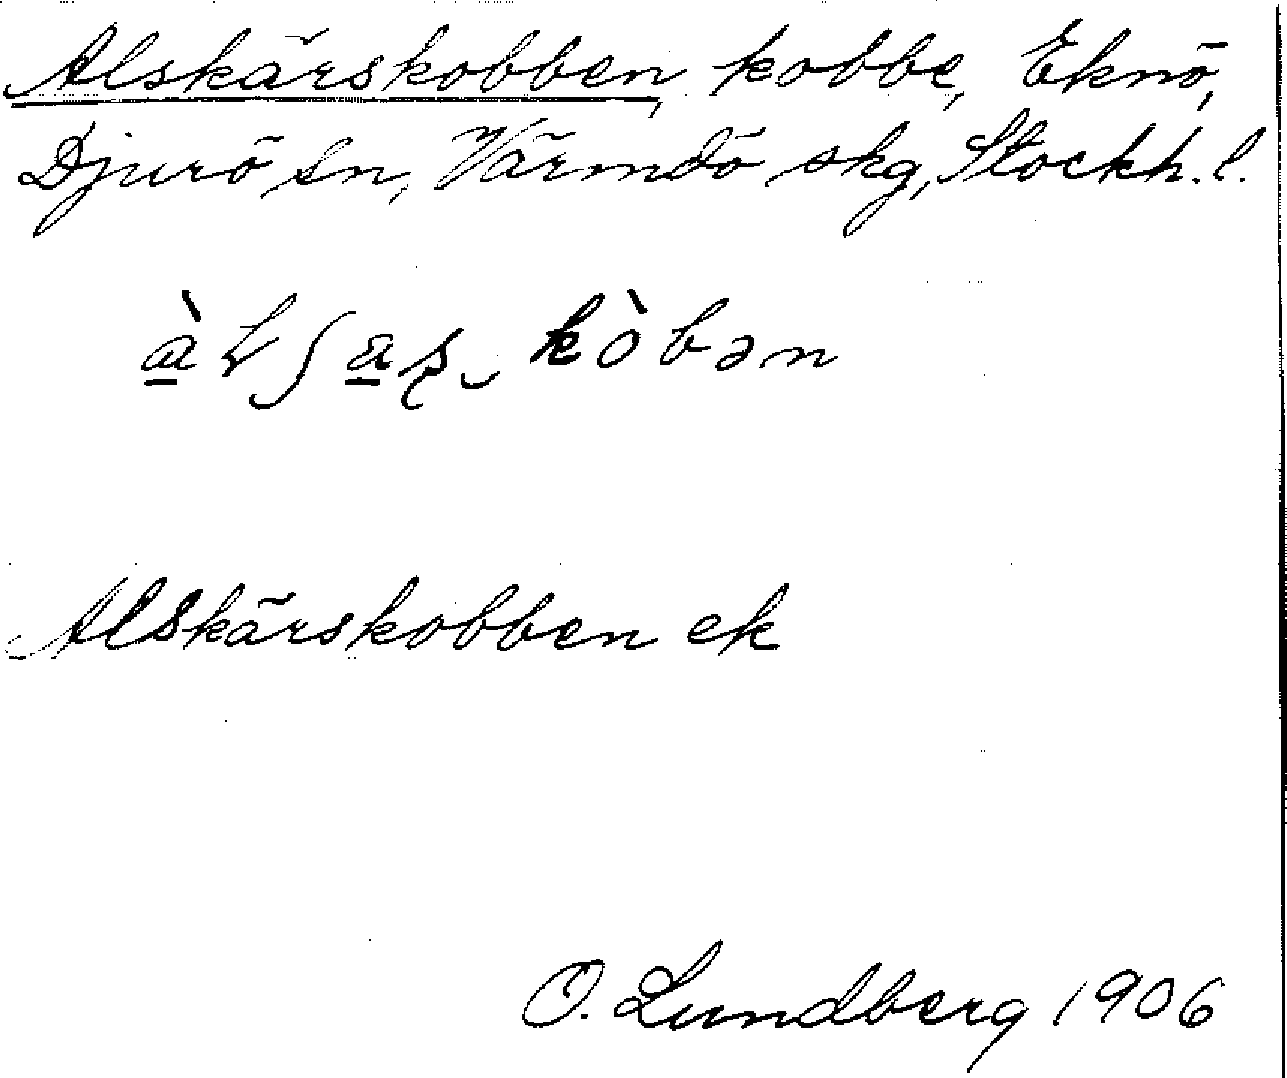 Alskärskobben, kobbe, Eknö,
Djurö sn, Värmdö skg, Stockh. l.
kòbən
Alskärskobben ek
O. Lundberg 1906